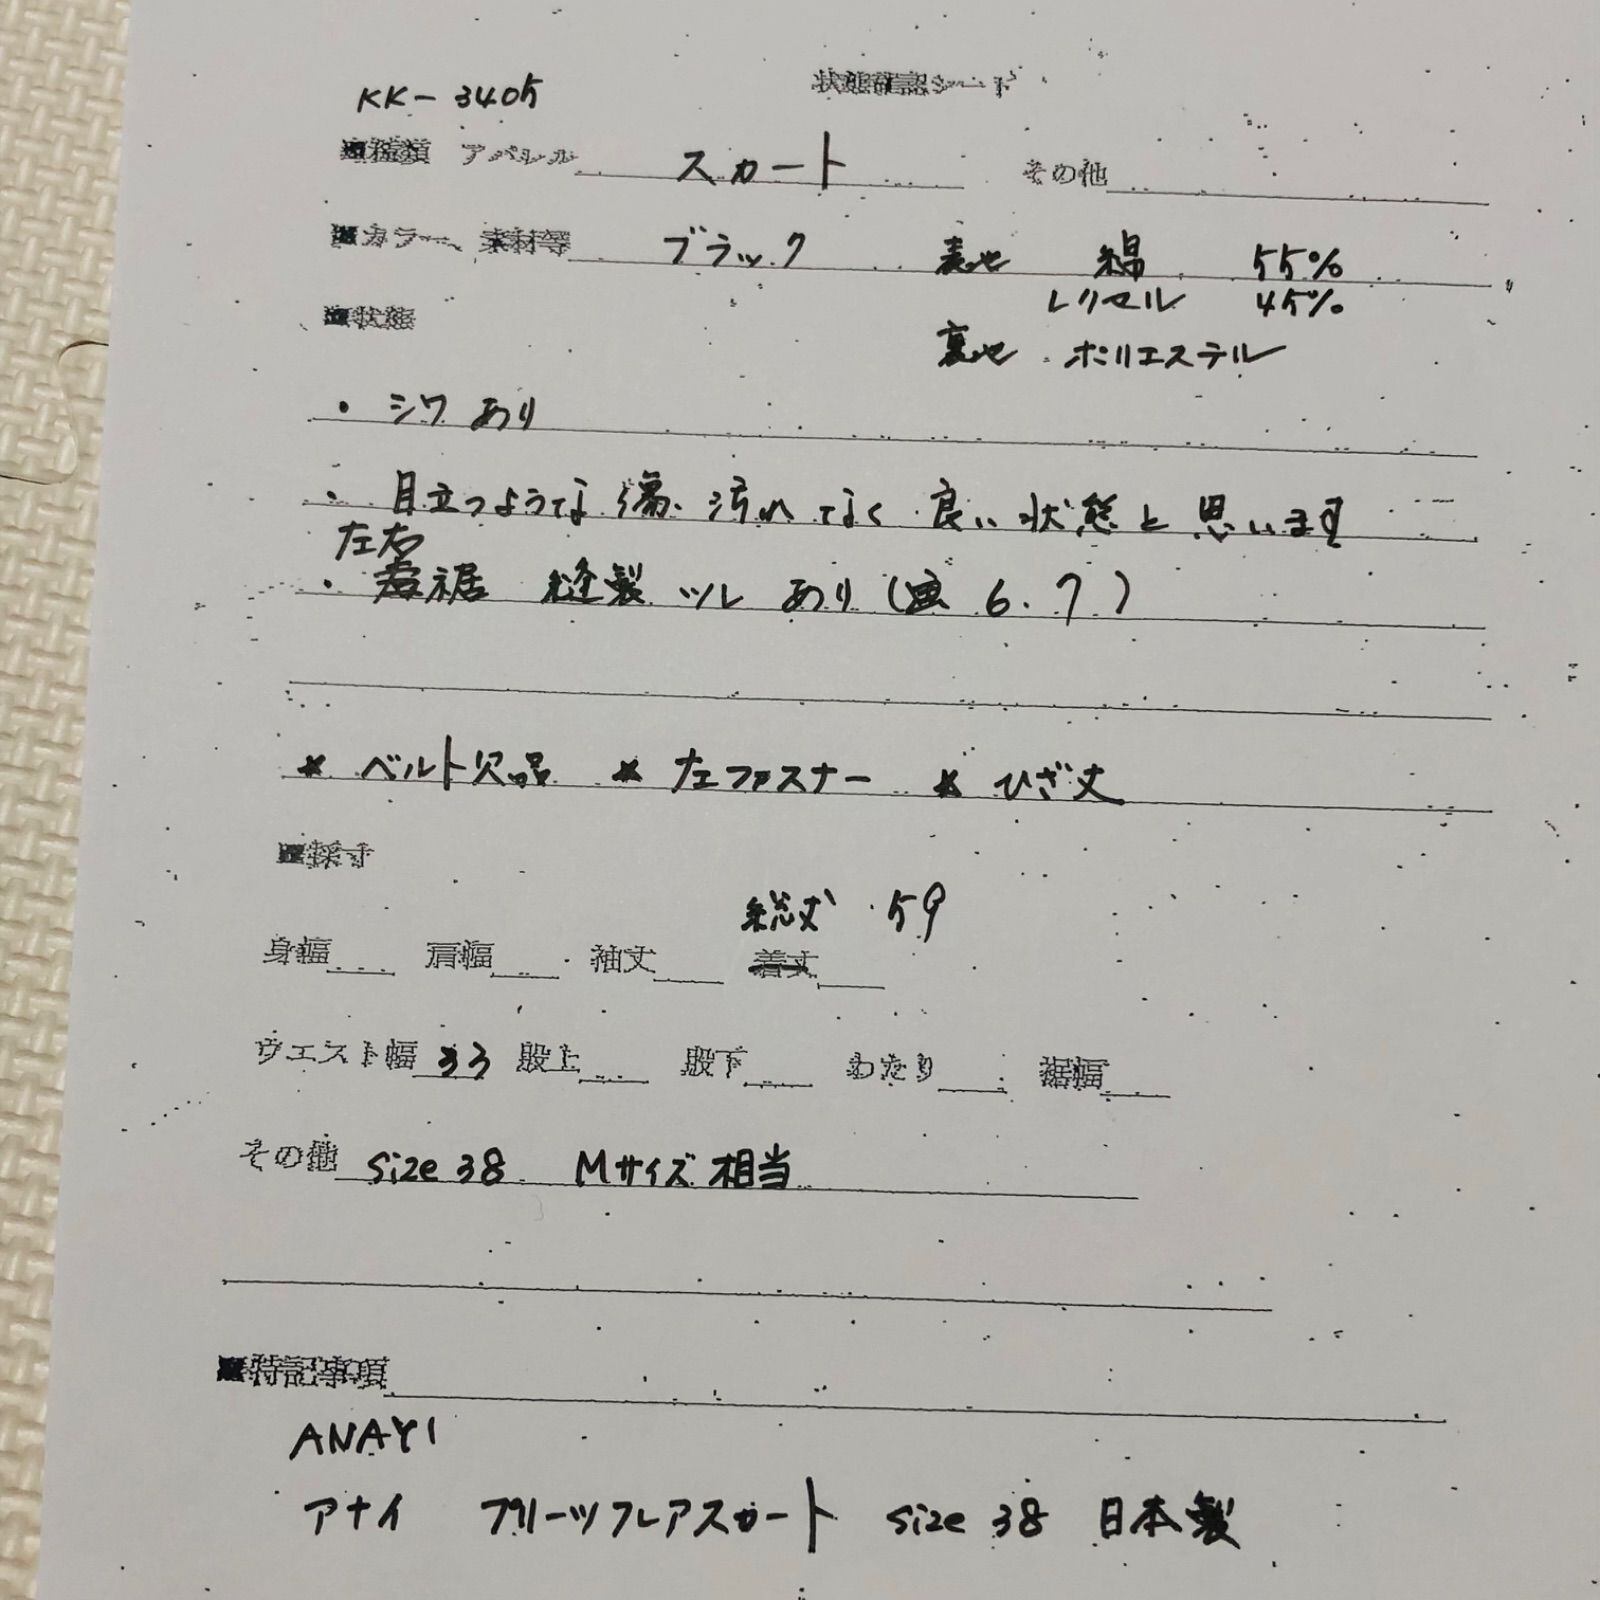 状態確認シート
KK-3405
■種類 アパレル スカート その他
■カラー、素材等 ブラック 表地 綿 55%
レリセル 45%
■状態
裏地 ポリエステル
・シワあり
・目立つような傷、汚れてなく良い状態と思います
左右
・裾 縫製ツレあり(画6.7)
* ベルト欠品 * 左ファスナー * ひざ丈
■採寸
総丈 59
身幅 肩幅 袖丈 着丈
ウエスト幅 33 股上 股下 わたり 裾幅
その他 size 38 Mサイズ相当
■特記事項
ANAYI
アナイ プリーツフレアスカート size 38 日本製